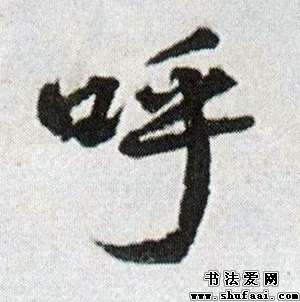 呼
书法爱网
www.shufaai.com